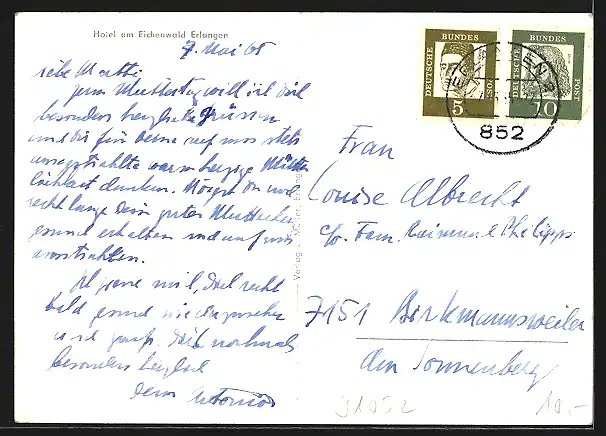 Hotel am Eichenwald Erlangen
7. Mai 65
Liebe Mutti,
zum Muttertag will ich Dich
besonders herzlich grüssen
und Dir für Deine auf uns stets
ausgestrahlte warmherzige Mütter-
lichkeit danken. Mögest Du noch
recht lange Dein gutes Mutterherz
gesund erhalten und auf uns
ausstrahlen.
Ich freue mich, Dich recht
bald gesund wiederzusehen
und grüße Dich nochmals
besonders herzlich
Dein
Verlag L. Müller, Erlangen
DEUTSCHE BUNDES POST
5
DEUTSCHE BUNDES POST
70
ERLANGEN
852
Frau
Louise Albrecht
c/o. Fam. Philipps
7151 Birkmannsweiler
Am Sonnenberg
91052
10,-